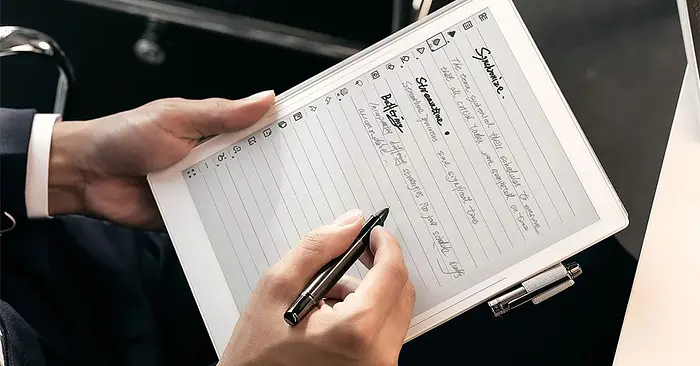 Synchronize.
The team synchronized their schedules to ensure
that all critical tasks were completed on time
Streamline
Streamlining processes save significant time
Buffering
buffering strategies into your schedule helps